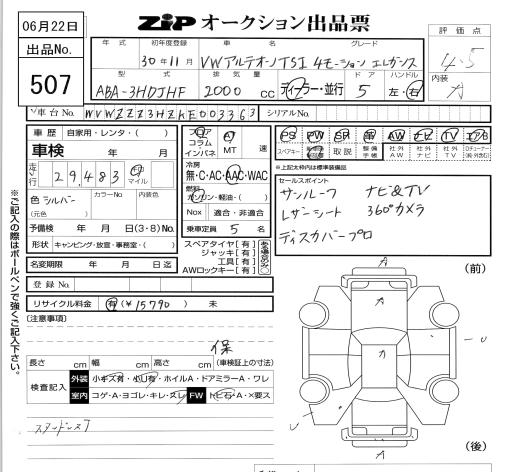 06月22日
出品No.
507
ZIP オークション出品票
評価点
4.5
内装
A
年式 初年度登録 車名 グレード
30年11月 VWアルテオン TSI 4モーション エレガンス
型式 排気量 ドア ハンドル
ABA-3HDJHF 2000 CC ディーラー・並行 5 左・右
車台No. WVWZZZ3HZKE003363 シリアルNo.
車歴 自家用・レンタ・( )
車検 年 月
走行 29,483 km マイル
色 シルバー カラーNo 内装色
(元色 )
予備検 年 月 日(3・8)No.
形状 キャンピング・放宣・事務室・( )
名変期限 年 月 日迄
フロア コラム インパネ AT MT 速
冷房
無・C・AC・AAC・WAC
燃料
ガソリン・軽油・( )
Nox 適合・非適合
乗車定員 5 名
スペアタイヤ[有]
ジャッキ[有]
工具[有]
AWロックキー[有]
PS PW SR 革 AW ナビ TV エアB
スペアキー 取説 整備手帳 社外AW 社外ナビ 社外TV
※上記太枠内は標準装備品
セールスポイント
サンルーフ ナビ&TV
レザーシート 360°カメラ
ディスカバープロ
登録No.
リサイクル料金 有(¥15790) 未
[注意事項]
保
長さ cm 幅 cm 高さ cm (車検証上の寸法)
検査記入 外装 小キズ有・小U有・ホイルA・ドアミラーA・ワレ
室内 コゲ・A・ヨゴレ・キレ・スレ FW トビ石・A・×要ス
スタッドレス7
※ご記入の際はボールペンで強くご記入下さい。
(前)
A
A
A
U
U
A
A
(後)